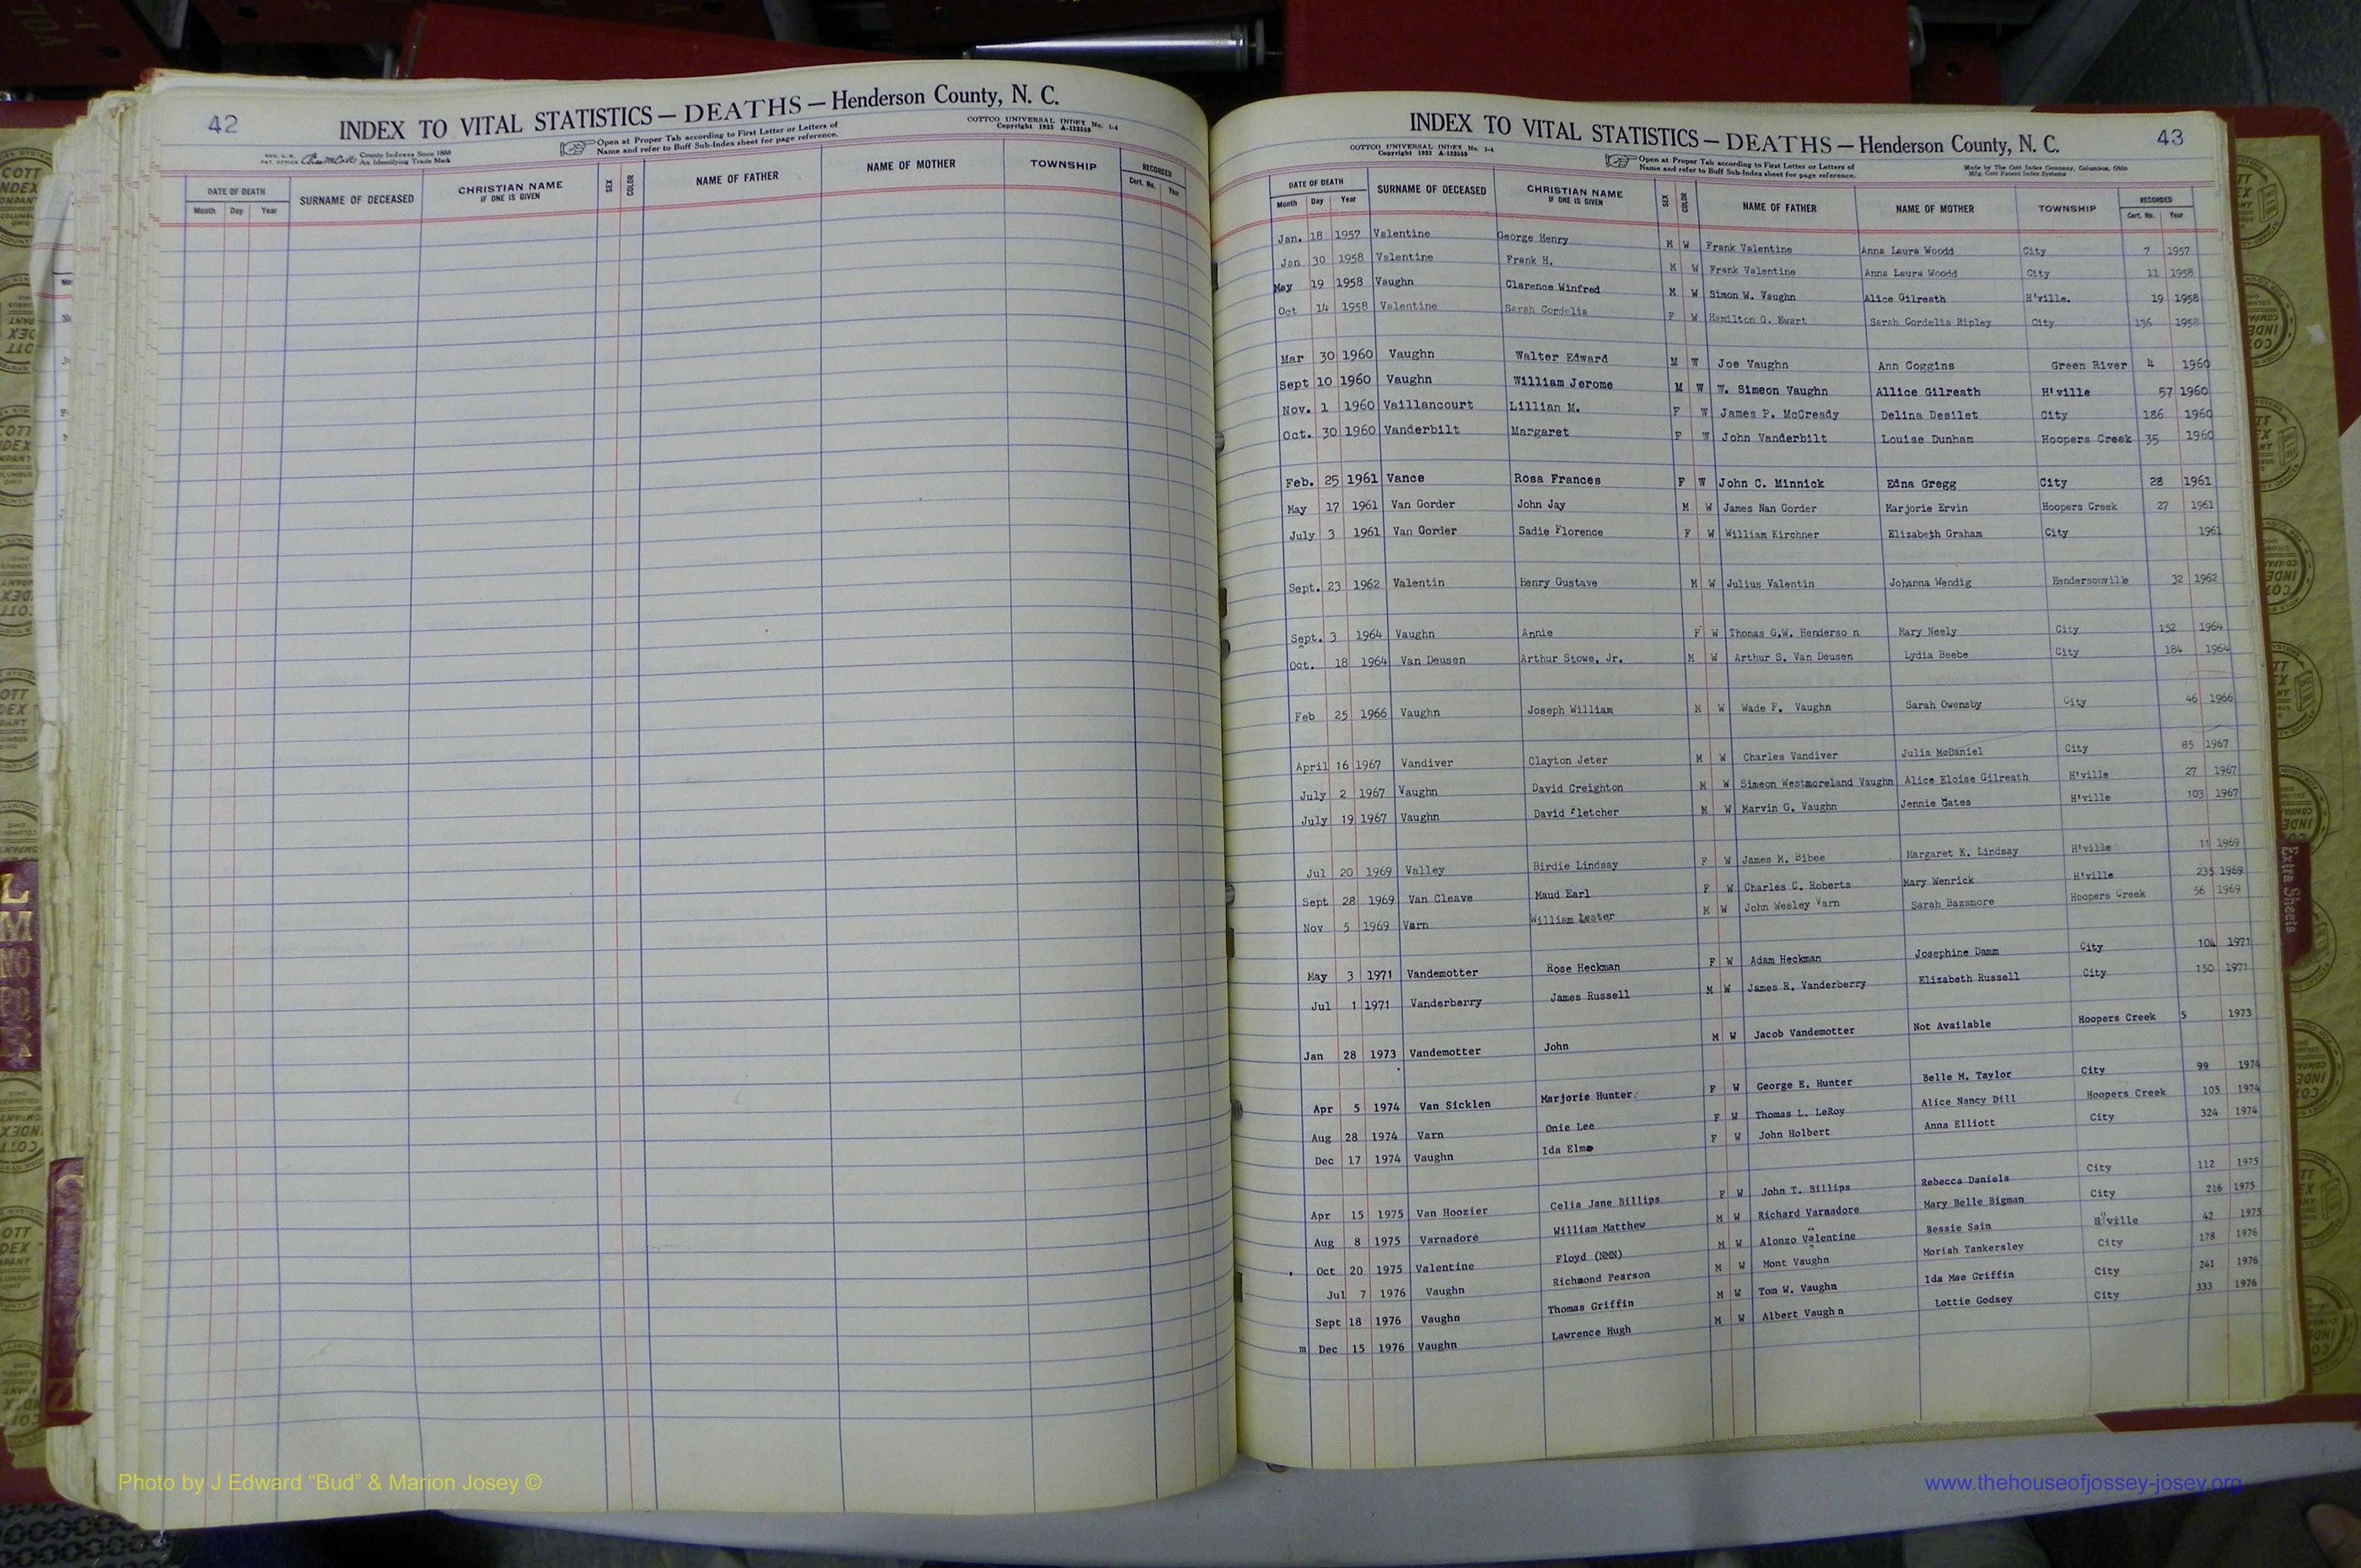 42
INDEX TO VITAL STATISTICS — DEATHS — Henderson County, N. C.
COTTCO UNIVERSAL INDEX No. 1-4
Copyright 1933 A-122559
County Indexes Since 1888
An Identifying Trade Mark
Open at Proper Tab according to First Letter or Letters of
Name and refer to Buff Sub-Index sheet for page reference.
DATE OF DEATH SURNAME OF DECEASED CHRISTIAN NAME IF ONE IS GIVEN SEX COLOR NAME OF FATHER NAME OF MOTHER TOWNSHIP RECORDED
Month Day Year Cert. No. Year
INDEX TO VITAL STATISTICS — DEATHS — Henderson County, N. C. 43
COTTCO UNIVERSAL INDEX No. 1-4
Copyright 1933
Open at Proper Tab according to First Letter or Letters of
Name and refer to Buff Sub-Index sheet for page reference.
Made by The Cott Index Company, Columbus, Ohio
Mfg. Cott Patent Index Systems
DATE OF DEATH SURNAME OF DECEASED CHRISTIAN NAME IF ONE IS GIVEN SEX COLOR NAME OF FATHER NAME OF MOTHER TOWNSHIP RECORDED
Month Day Year Cert. No. Year
Jan. 18 1957 Valentine George Henry M W Frank Valentine Anna Laura Woodd City 7 1957
Jan 30 1958 Valentine Frank H. M W Frank Valentine Anna Laura Woodd City 11 1958
May 19 1958 Vaughn Clarence Winfred M W Simon W. Vaughn Alice Gilreath H'ville. 19 1958
Oct 14 1958 Valentine Sarah Cordelia F W Hamilton G. Ewart Sarah Cordelia Ripley City 136 1958
Mar 30 1960 Vaughn Walter Edward M W Joe Vaughn Ann Coggins Green River 4 1960
Sept 10 1960 Vaughn William Jerome M W W. Simeon Vaughn Allice Gilreath H'ville 57 1960
Nov. 1 1960 Vaillancourt Lillian M. F W James P. McCready Delina Desilet City 186 1960
Oct. 30 1960 Vanderbilt Margaret F W John Vanderbilt Louise Dunham Hoopers Creek 35 1960
Feb. 25 1961 Vance Rosa Frances F W John C. Minnick Edna Gregg City 28 1961
May 17 1961 Van Gorder John Jay M W James Nan Gorder Marjorie Ervin Hoopers Creek 27 1961
July 3 1961 Van Gorder Sadie Florence F W William Kirchner Elizabeth Graham City 1961
Sept. 23 1962 Valentin Henry Gustave M W Julius Valentin Johanna Wendig Hendersonville 32 1962
Sept. 3 1964 Vaughn Annie F W Thomas G.W. Henderso n Mary Neely City 152 1964
Oct. 18 1964 Van Deusen Arthur Stowe, Jr. M W Arthur S. Van Deusen Lydia Beebe City 184 1964
Feb 25 1966 Vaughn Joseph William M W Wade F. Vaughn Sarah Owensby City 46 1966
April 16 1967 Vandiver Clayton Jeter M W Charles Vandiver Julia McDaniel City 85 1967
July 2 1967 Vaughn David Creighton M W Simeon Westmoreland Vaughn Alice Eloise Gilreath H'ville 27 1967
July 19 1967 Vaughn David Fletcher M W Marvin G. Vaughn Jennie Cates H'ville 103 1967
Jul 20 1969 Valley Birdie Lindsay F W James M. Bibee Margaret K. Lindsay H'ville 11 1969
Sept 28 1969 Van Cleave Maud Earl F W Charles C. Roberts Mary Wenrick H'ville 235 1969
Nov 5 1969 Varn William Lester M W John Wesley Varn Sarah Bazemore Hoopers Creek 56 1969
May 3 1971 Vandemotter Rose Heckman F W Adam Heckman Josephine Damm City 104 1971
Jul 1 1971 Vanderberry James Russell M W James R. Vanderberry Elizabeth Russell City 150 1971
Jan 28 1973 Vandemotter John M W Jacob Vandemotter Not Available Hoopers Creek 5 1973
Apr 5 1974 Van Sicklen Marjorie Hunter F W George E. Hunter Belle M. Taylor City 99 1974
Aug 28 1974 Varn Onie Lee F W Thomas L. LeRoy Alice Nancy Dill Hoopers Creek 105 1974
Dec 17 1974 Vaughn Ida Elmo F W John Holbert Anna Elliott City 324 1974
Apr 15 1975 Van Hoozier Celia Jane Billips F W John T. Billips Rebecca Daniels City 112 1975
Aug 8 1975 Varnadore William Matthew M W Richard Varnadore Mary Belle Bigman City 216 1975
Oct 20 1975 Valentine Floyd (NMN) M W Alonzo Valentine Bessie Sain H'ville 42 1975
Jul 7 1976 Vaughn Richmond Pearson M W Mont Vaughn Moriah Tankersley City 178 1976
Sept 18 1976 Vaughn Thomas Griffin M W Tom W. Vaughn Ida Mae Griffin City 241 1976
m Dec 15 1976 Vaughn Lawrence Hugh M W Albert Vaugh n Lottie Godsey City 333 1976
Extra Sheets
L
M
Photo by J Edward “Bud” & Marion Josey ©
www.thehouseofjossey-josey.org